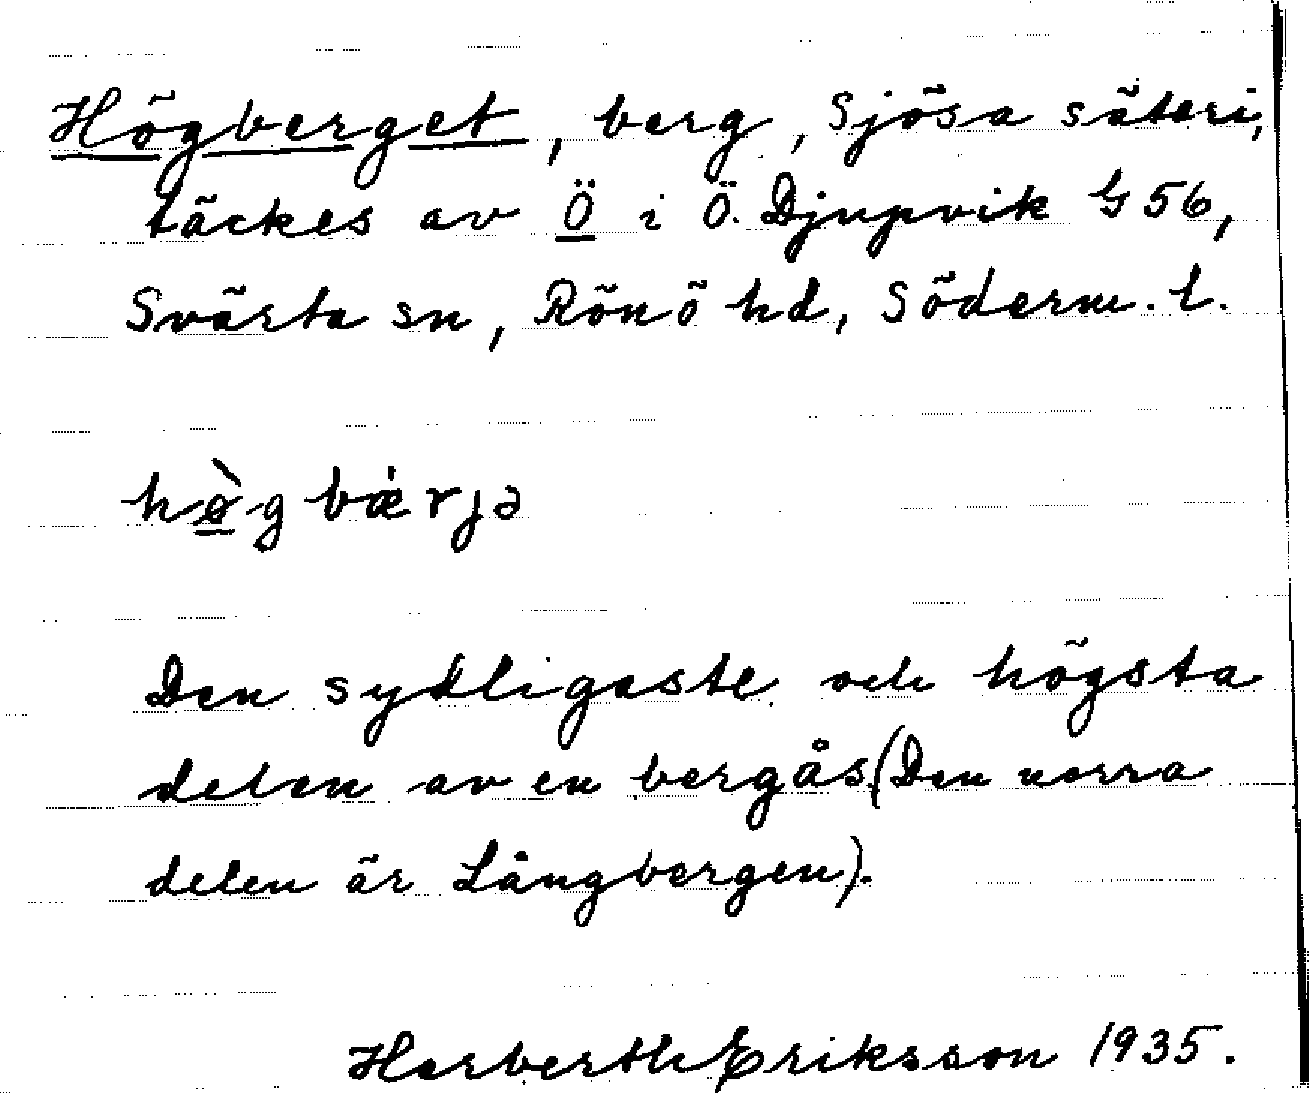 Högberget, berg, Sjösa säteri,
täckes av Ö i Ö. Djupvik G 56,
Svärta sn, Rönö hd, Söderm. l.
hø̀gbǽrjə
Den sydligaste och högsta
delen av en bergås (Den norra
delen är Långbergen).
Herberth Eriksson 1935.